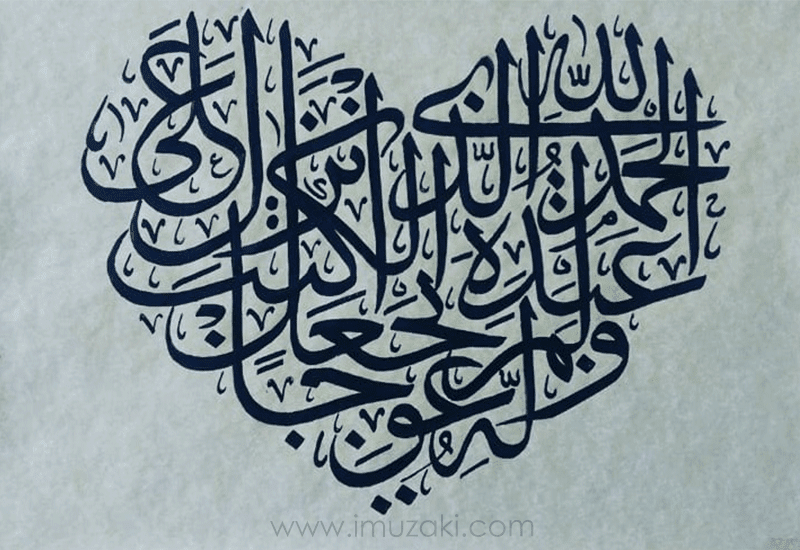 الحمد لله الذى انزل على
عبده الكتب
ولم يجعل
له عوجا
www.imuzaki.com